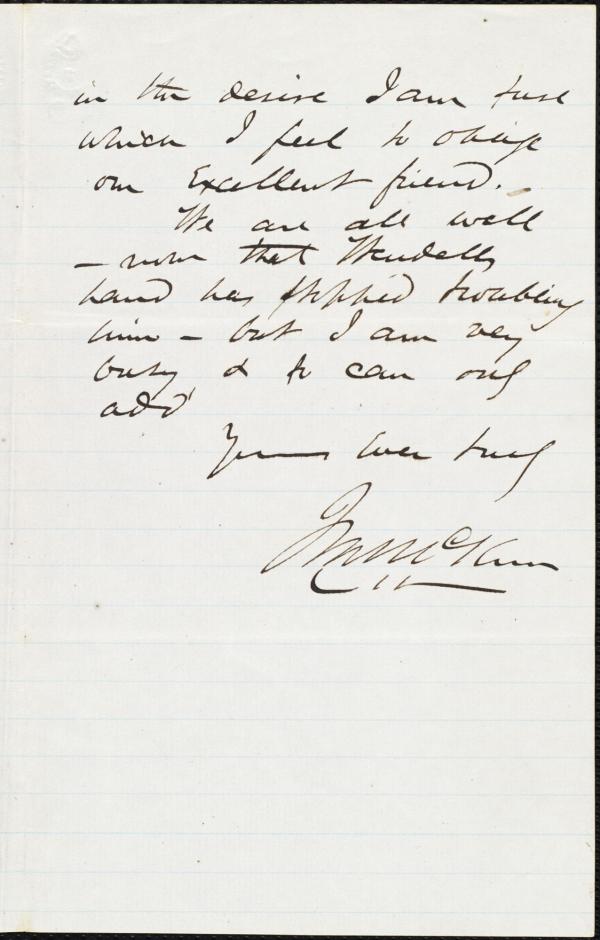 in the desire I am sure
which I feel to oblige
our Excellent friend.
We are all well
– now that Wendell's
hand has stopped troubling
him – but I am very
busy & so can only
add
Yours Ever truly
McKim